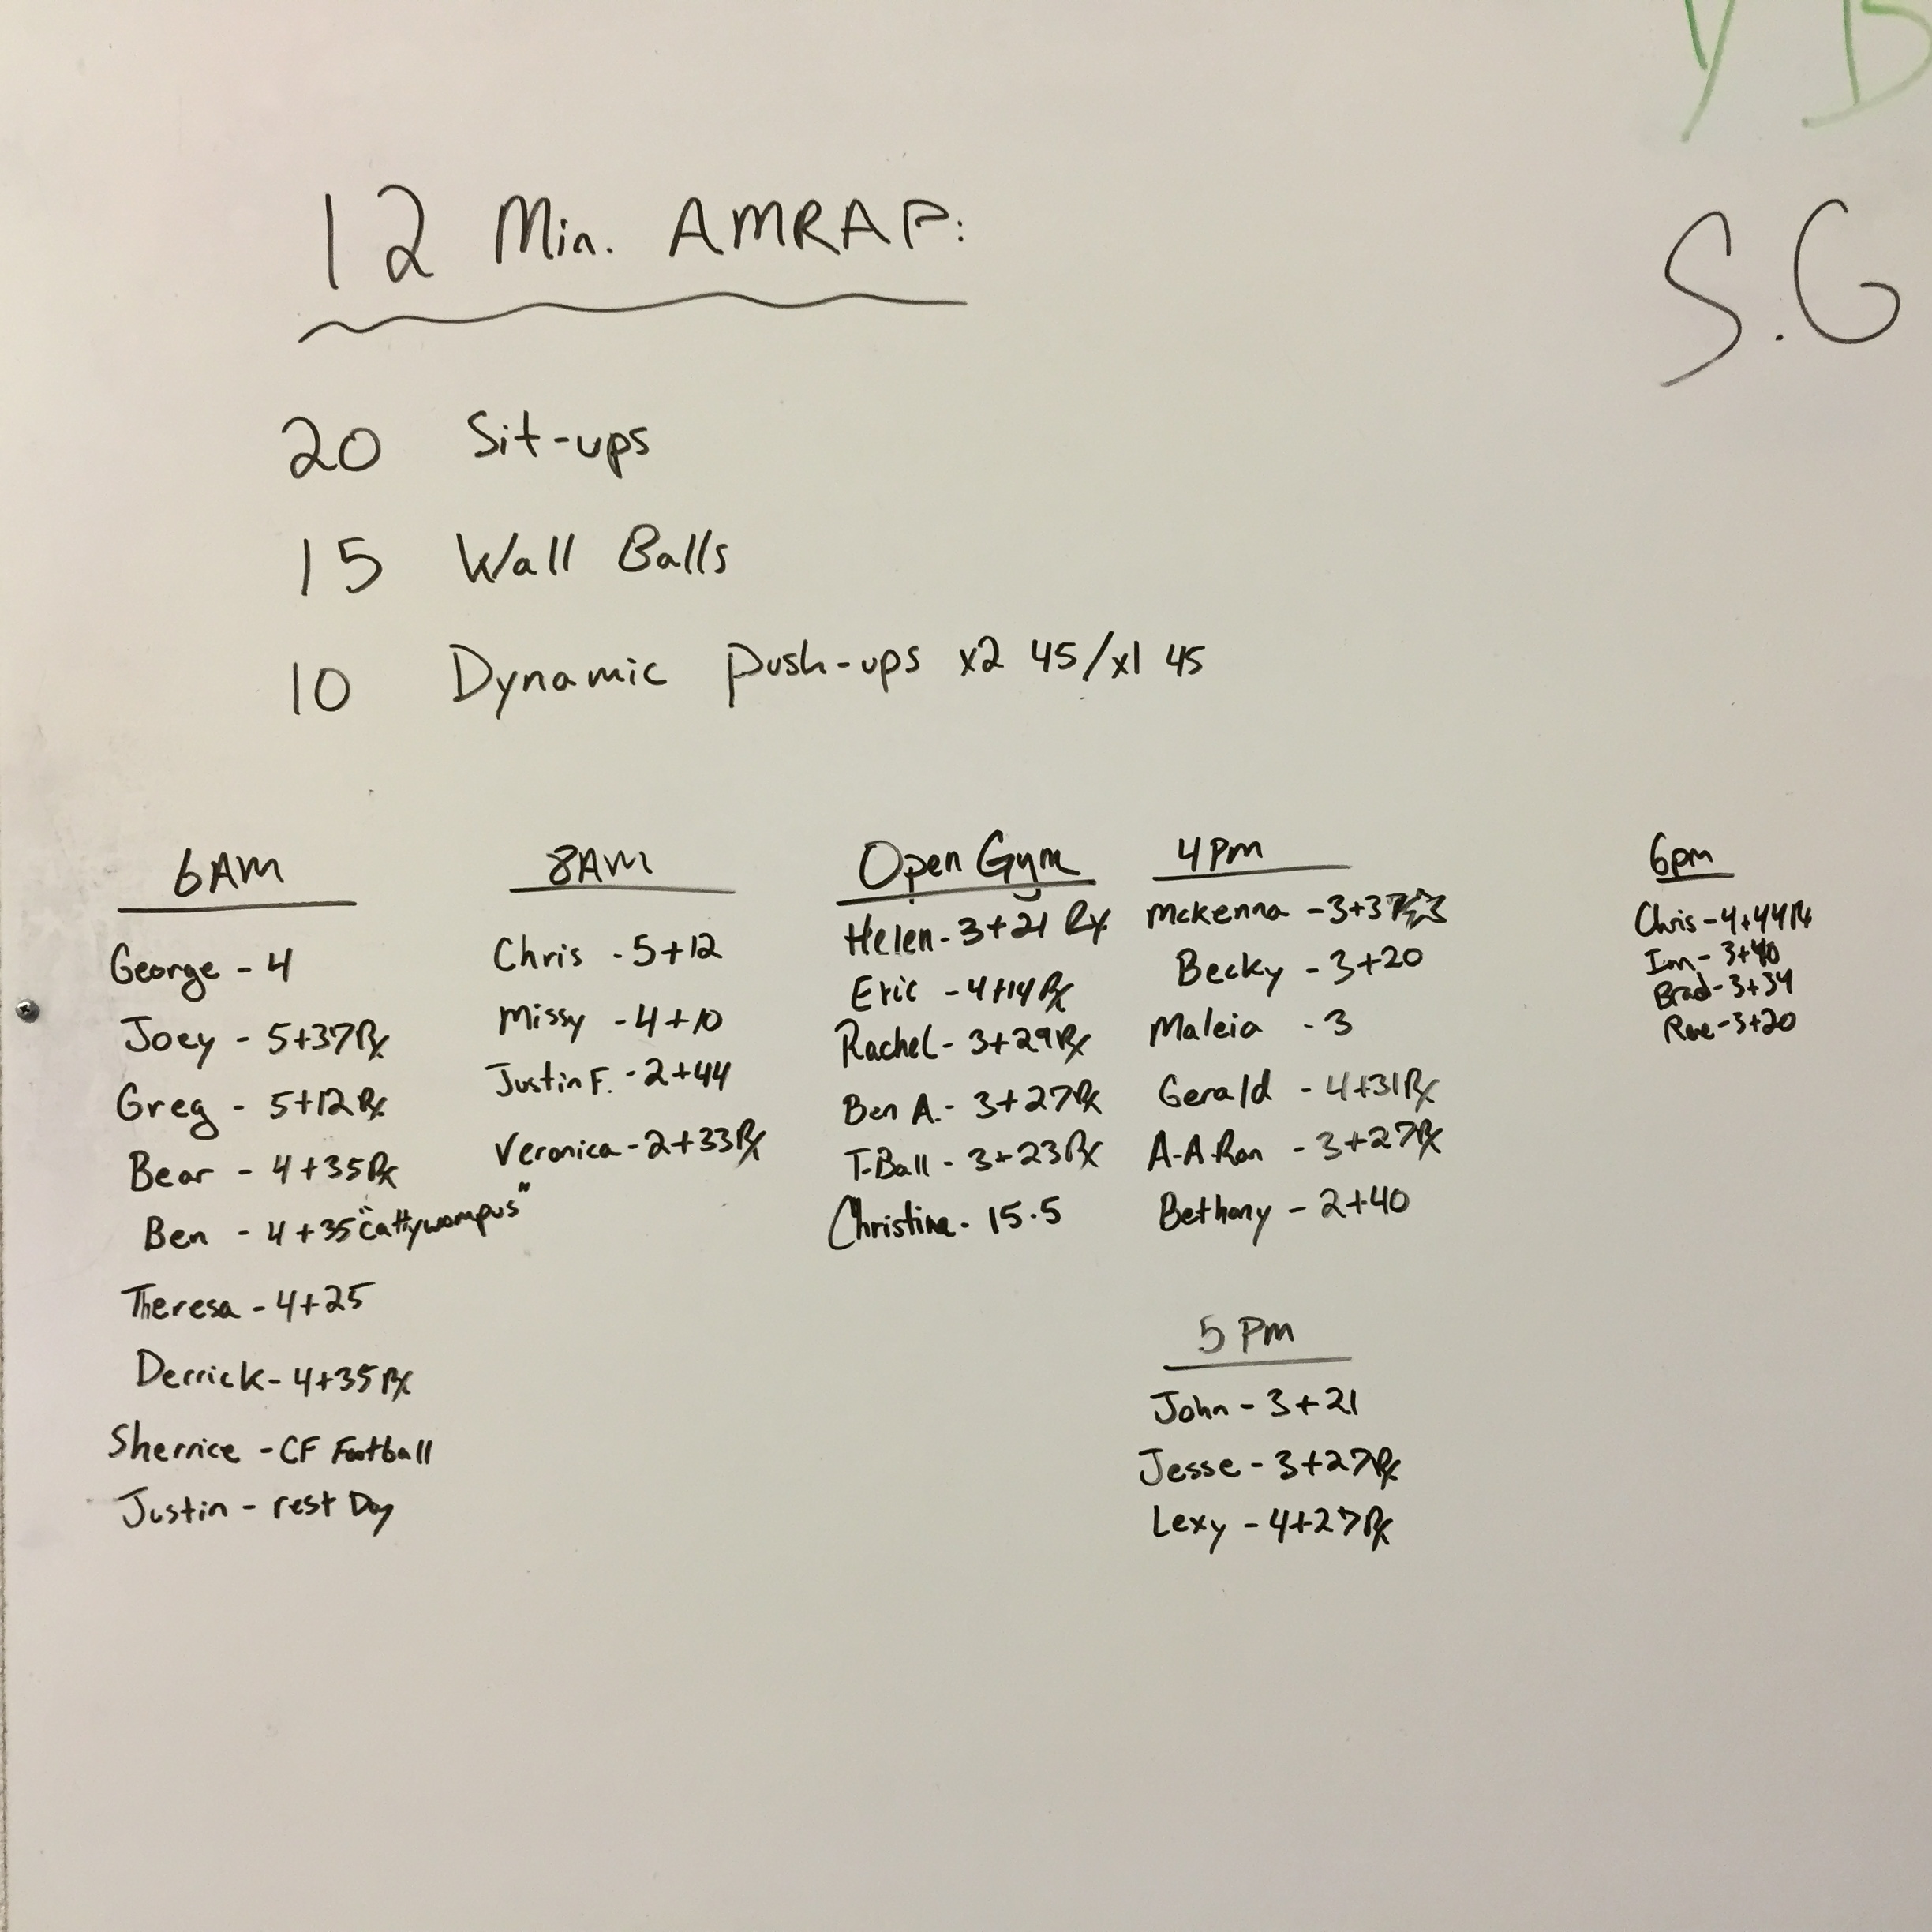 12 Min. AMRAP:
S.G
20 Sit-ups
15 Wall Balls
10 Dynamic push-ups x2 45/x1 45
6AM
George - 4
Joey - 5+37Rx
Greg - 5+12Rx
Bear - 4+35Rx
Ben - 4+35 "Cattywompus"
Theresa - 4+25
Derrick - 4+35Rx
Sherrice - CF Football
Justin - rest Day
8AM
Chris - 5+12
Missy - 4+10
Justin F. - 2+44
Veronica - 2+33Rx
Open Gym
Helen - 3+21 Rx
Eric - 4+14Rx
Rachel - 3+29Rx
Ben A. - 3+27Rx
T-Ball - 3+23Rx
Christina - 15.5
4Pm
Mckenna - 3+37
Becky - 3+20
Maleia - 3
Gerald - 4+31Rx
A-A Ron - 3+27Rx
Bethany - 2+40
5 Pm
John - 3+21
Jesse - 3+27Rx
Lexy - 4+27Rx
6pm
Chris - 4+44Rx
3+40
Brad - 3+34
3+20